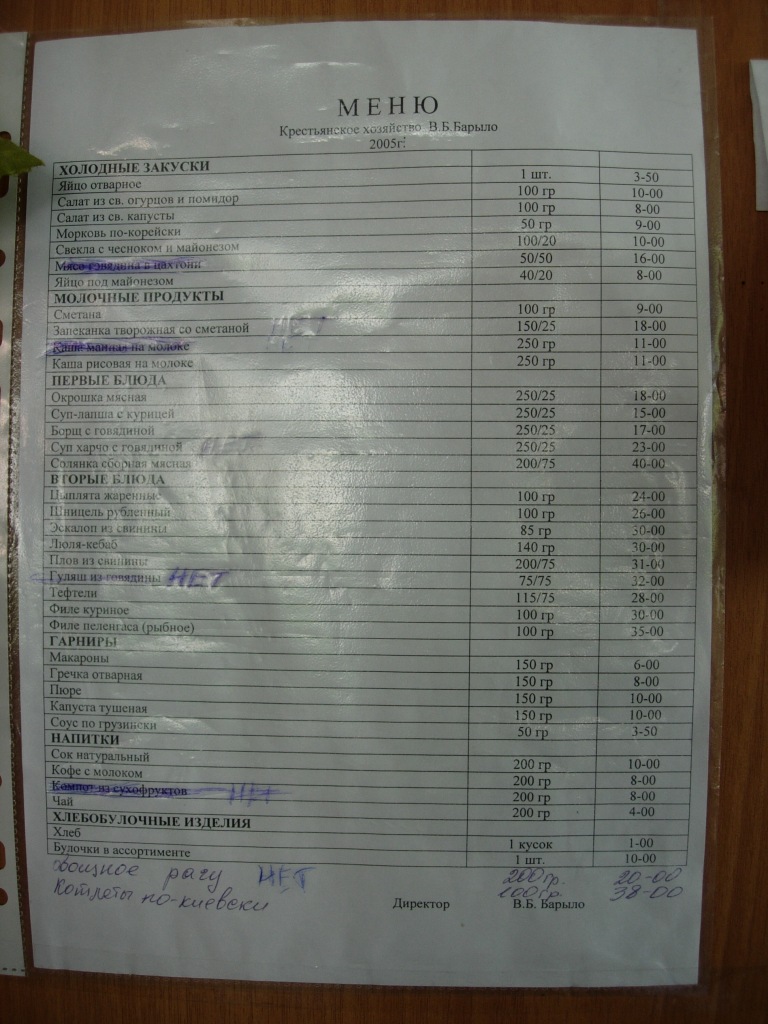 МЕНЮ
Крестьянское хозяйство В.Б.Барыло
2005г.
ХОЛОДНЫЕ ЗАКУСКИ
Яйцо отварное 1 шт. 3-50
Салат из св. огурцов и помидор 100 гр 10-00
Салат из св. капусты 100 гр 8-00
Морковь по-корейски 50 гр 9-00
Свекла с чесноком и майонезом 100/20 10-00
Мясо говядина в цахтони 50/50 16-00
Яйцо под майонезом 40/20 8-00
МОЛОЧНЫЕ ПРОДУКТЫ
Сметана 100 гр 9-00
Запеканка творожная со сметаной НЕТ 150/25 18-00
Каша манная на молоке 250 гр 11-00
Каша рисовая на молоке 250 гр 11-00
ПЕРВЫЕ БЛЮДА
Окрошка мясная 250/25 18-00
Суп-лапша с курицей 250/25 15-00
Борщ с говядиной 250/25 17-00
Суп харчо с говядиной НЕТ 250/25 23-00
Солянка сборная мясная 200/75 40-00
ВТОРЫЕ БЛЮДА
Цыплята жаренные 100 гр 24-00
Шницель рубленный 100 гр 26-00
Эскалоп из свинины 85 гр 30-00
Люля-кебаб 140 гр 30-00
Плов из свинины 200/75 31-00
Гуляш из говядины НЕТ 75/75 32-00
Тефтели 115/75 28-00
Филе куриное 100 гр 30-00
Филе пеленгаса (рыбное) 100 гр 35-00
ГАРНИРЫ
Макароны 150 гр 6-00
Гречка отварная 150 гр 8-00
Пюре 150 гр 10-00
Капуста тушеная 150 гр 10-00
Соус по грузински 50 гр 3-50
НАПИТКИ
Сок натуральный 200 гр 10-00
Кофе с молоком 200 гр 8-00
Компот из сухофруктов НЕТ 200 гр 8-00
Чай 200 гр 4-00
ХЛЕБОБУЛОЧНЫЕ ИЗДЕЛИЯ
Хлеб 1 кусок 1-00
Булочки в ассортименте 1 шт. 10-00
Овощное рагу НЕТ 200гр. 20-00
Котлеты по-киевски 100гр. 38-00
Директор В.Б. Барыло